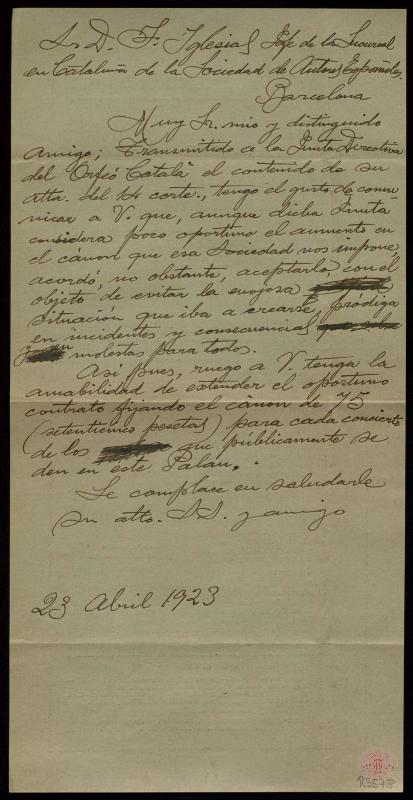 Sr D. F. Iglesias Jefe de la Sucursal
en Cataluña de la Sociedad de Autores Españoles.
Barcelona
Muy Sr. mio y distinguido
amigo; Transmitido a la Junta Directiva
del "Orfeó Català" el contenido de su
atta. del 14 corte., tengo el gusto de comu
nicar a V. que, aunque dicha Junta
considera poco oportuno el aumento en
el cánon que esa Sociedad nos impone,
acordó, no obstante, aceptarlo, con el
objeto de evitar la enojosa
situación que iba a crearse, pródiga
en incidentes y consecuencias
molestas para todos.
Asi pues, ruego a V. tenga la
amabilidad de extender el oportuno
contrato fijando el cànon de 75
(setenticinco pesetas) para cada concierto
de los que publicamente se
den en este Palau.
Se complace en saludarle
su atto. S.S. y amigo
23 Abril 1923